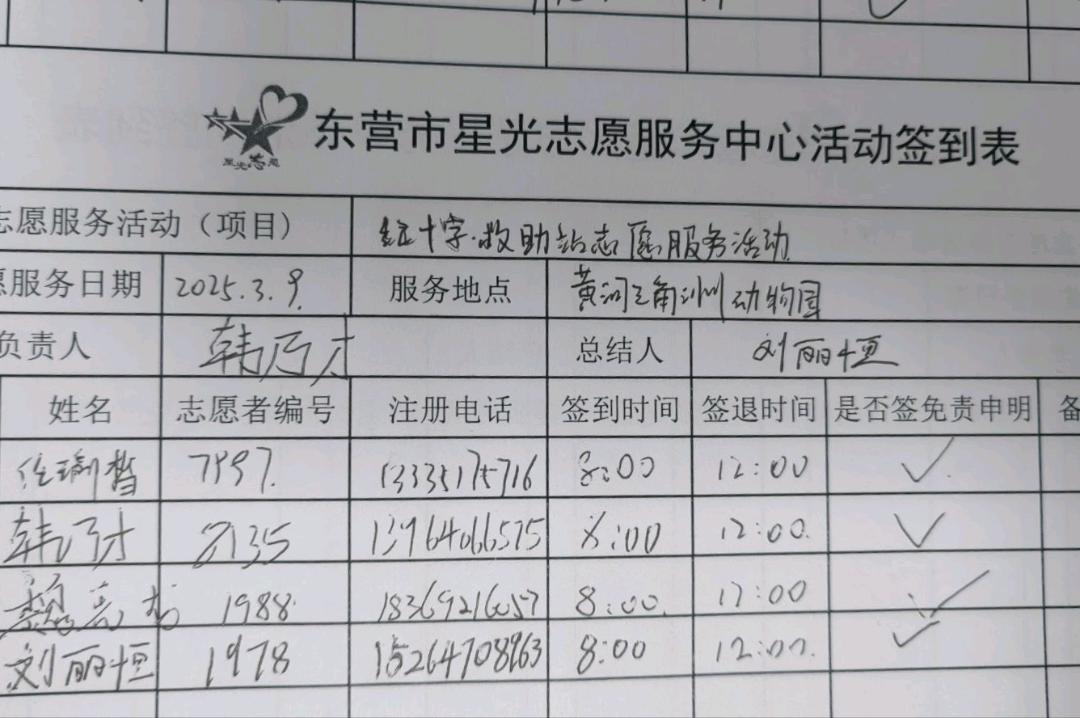 东营市星光志愿服务中心活动签到表
志愿服务活动（项目） 红十字救助站志愿服务活动
愿服务日期 2025.3.9. 服务地点 黄河三角洲动物园
负责人 韩乃才 总结人 刘丽恒
姓名 志愿者编号 注册电话 签到时间 签退时间 是否签免责申明 备
7997. 13335175716 8:00 12:00 ✓
韩乃才 2135 13964066575 8:00 12:00. ✓
1988. 18369216057 8:00. 12:00 ✓
刘丽恒 1978 15264708963 8:00 12:00. ✓